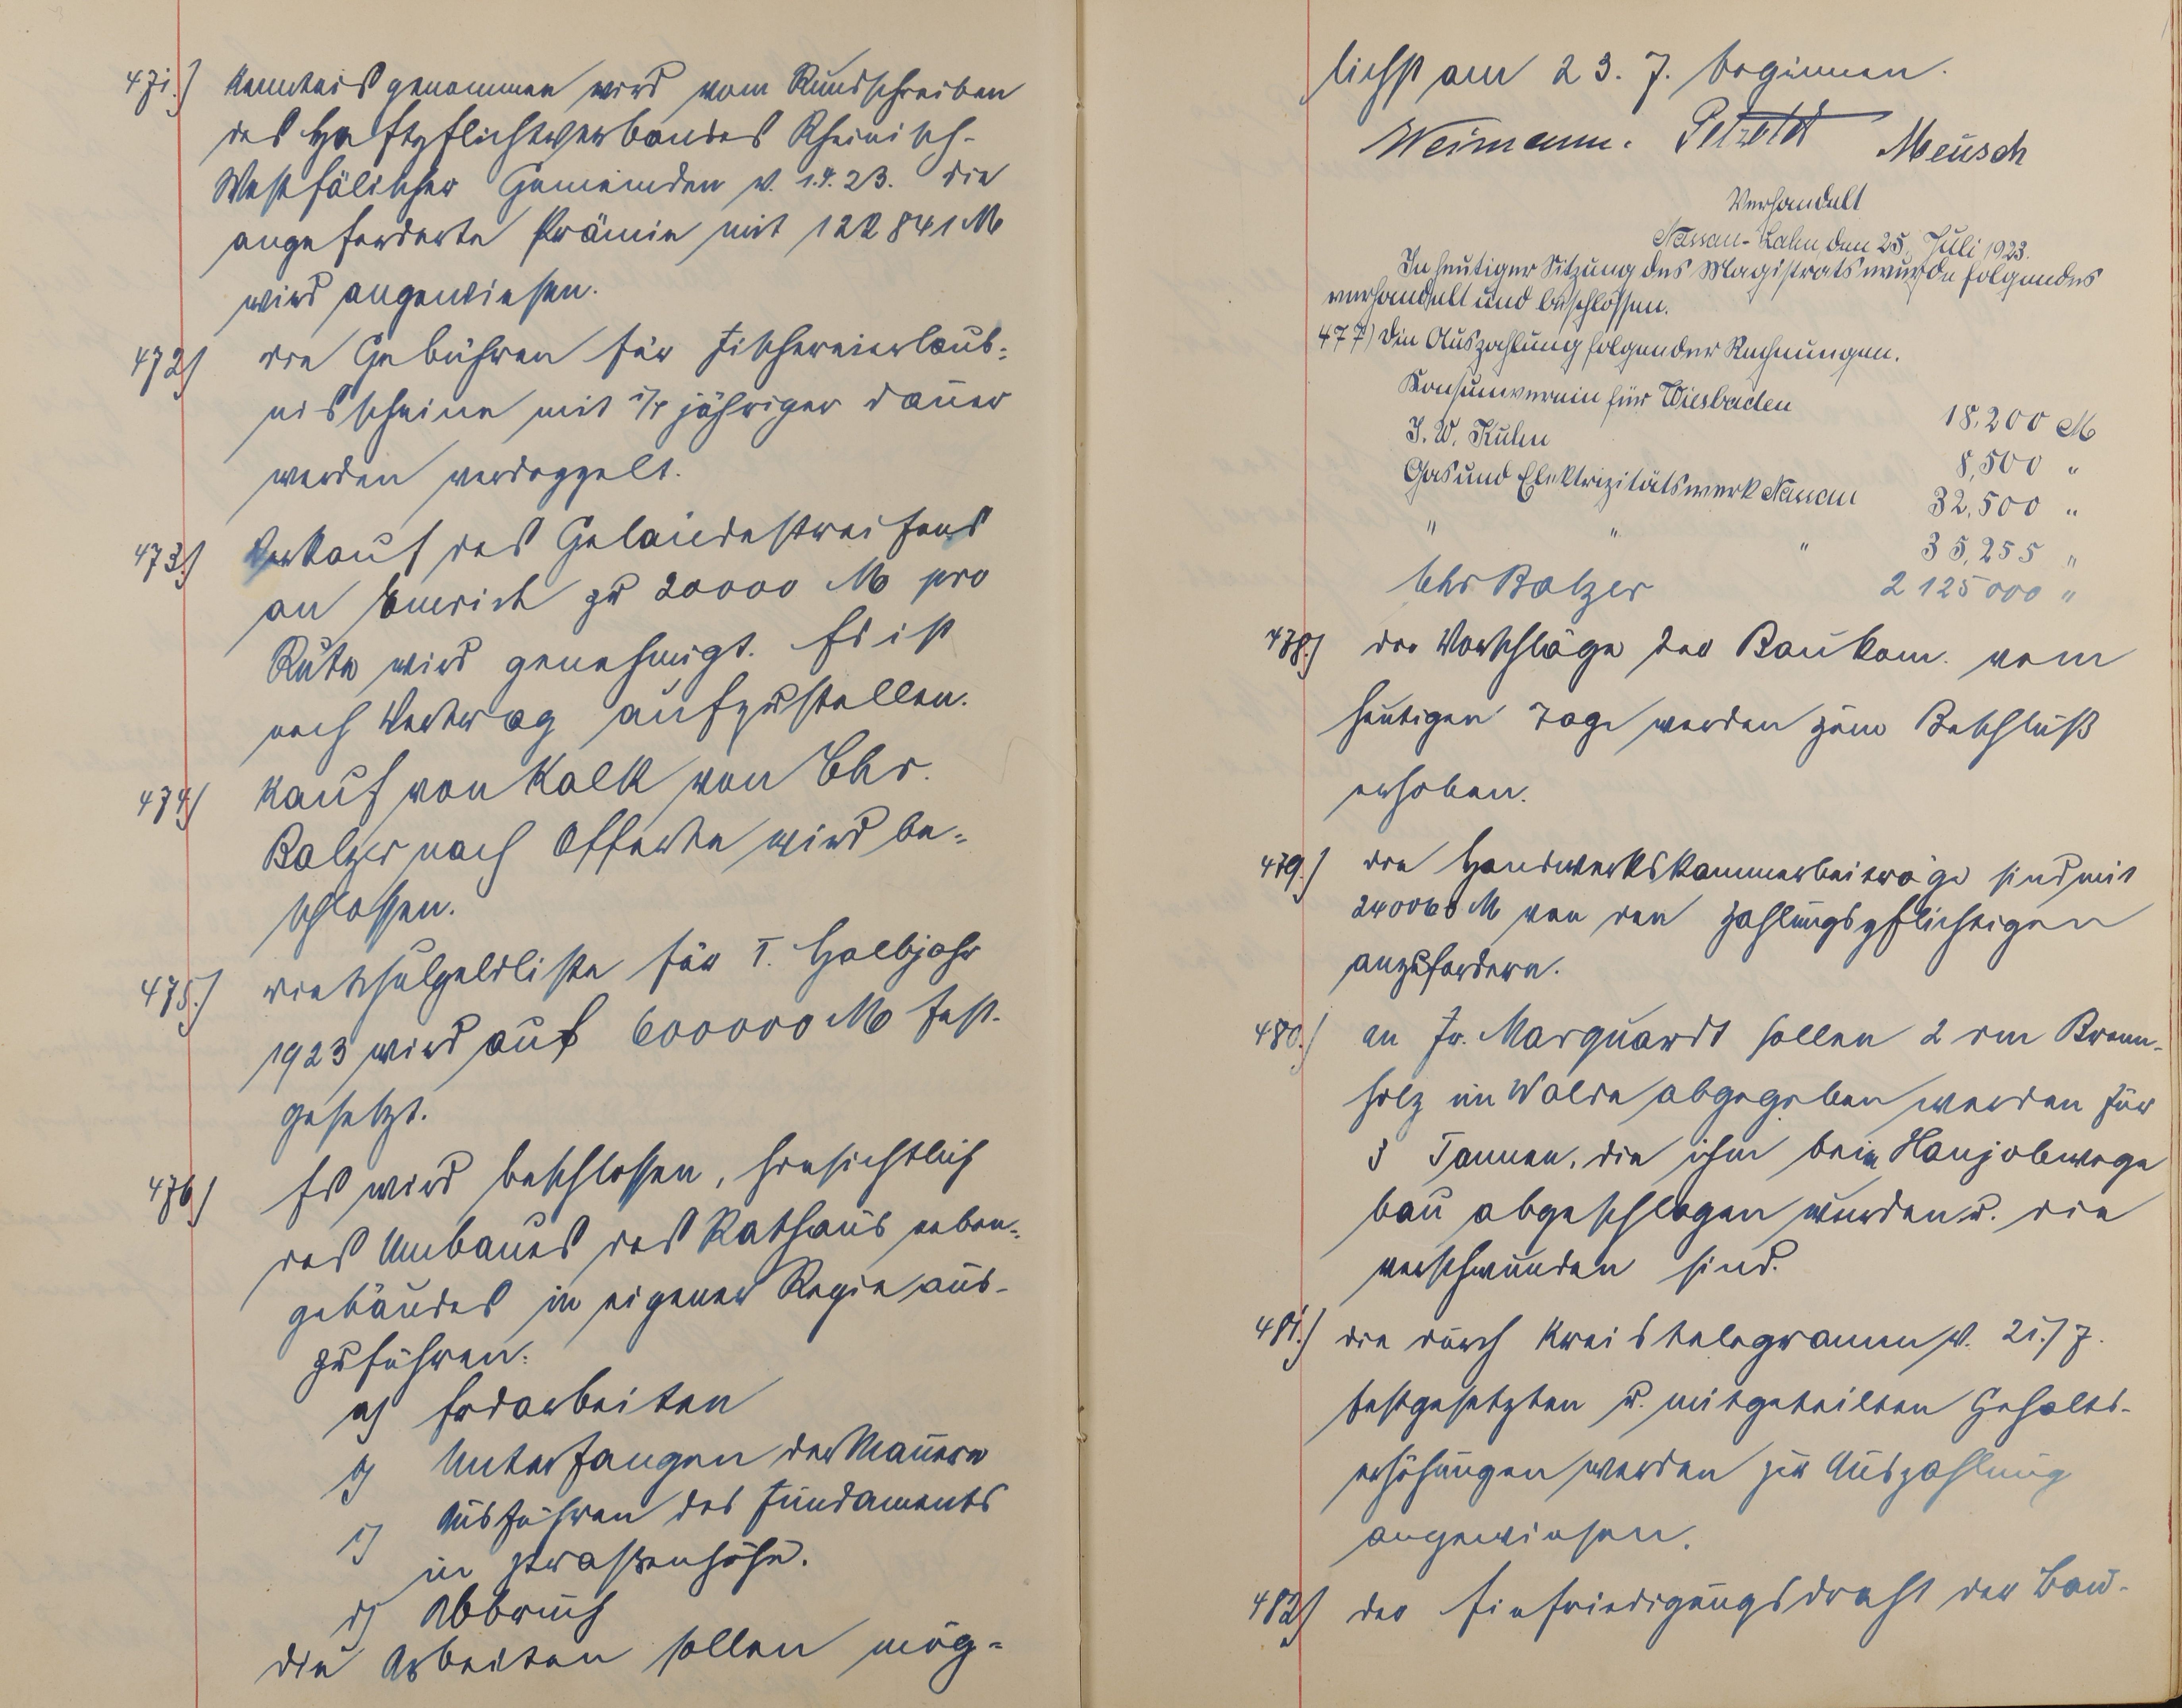 471.) Kenntnis genommen wird vom Rundschreiben
des Haftpflichtverbandes Rheinisch-
Westfälischer Gemeinden v. 1.7.23. die
angeforderte Prämie mit 122841 M
wird angewiesen.
472) die Gebühren für Fischereierlaub-
nisscheine mit 1/4 jähriger Dauer
werden verdoppelt.
473.) Verkauf des Geländestreifens
an Emrich zu 20000 M pro
Rute wird genehmigt. Es ist
noch Vertrag aufzustellen.
474) Kauf von Kalk von Chr.
Balzer nach Offerte wird be-
schlossen.
475.) die Schulgeldliste für I. Halbjahr
1923 wird auf 600000 M fest-
gesetzt.
476) Es wird beschlossen, hinsichtlich
des Umbaues des Rathaus neben-
gebäudes in eigener Regie aus-
zuführen:
a) Erdarbeiten
b) Unterfangen der Mauern
c) Ausführen des Fundaments
in Straßenhöhe.
d) Abbruch
die Arbeiten sollen mög-
lichst am 23. 7. beginnen.
Weimann. Petzold Meusch
Verhandelt
Nassau-Lahn, den 25. Juli 1923.
In heutiger Sitzung des Magistrats wurde folgendes
verhandelt und beschlossen.
477) Die Auszahlung folgender Rechnungen.
Konsumverein für Wiesbaden 18,200 M
J. W. Kuhn 8,500 "
Gas und Elektrizitätswerk Nassau 32,500 "
" " " 35,255 "
Chr Balzer 2 125 000 "
478.) die Vorschläge der Baukom. vom
heutigen Tage werden zum Beschluß
erhoben.
479.) die Handwerkskammerbeiträge sind mit
240060 M von den Zahlungspflichtigen
anzufordern.
480.) an Fr. Marquardt sollen 2 rm Brenn-
holz im Walde abgegeben werden für
3 Tannen, die ihm beim Hanjobwege
bau abgeschlagen wurden u. die
verschwunden sind.
481.) die durch Kreistelegramm v. 21./7.
festgesetzten u. mitgeteilten Gehalts-
erhöhungen werden zur Auszahlung
angewiesen.
482) der Einfriedigungsdraht der Bau-